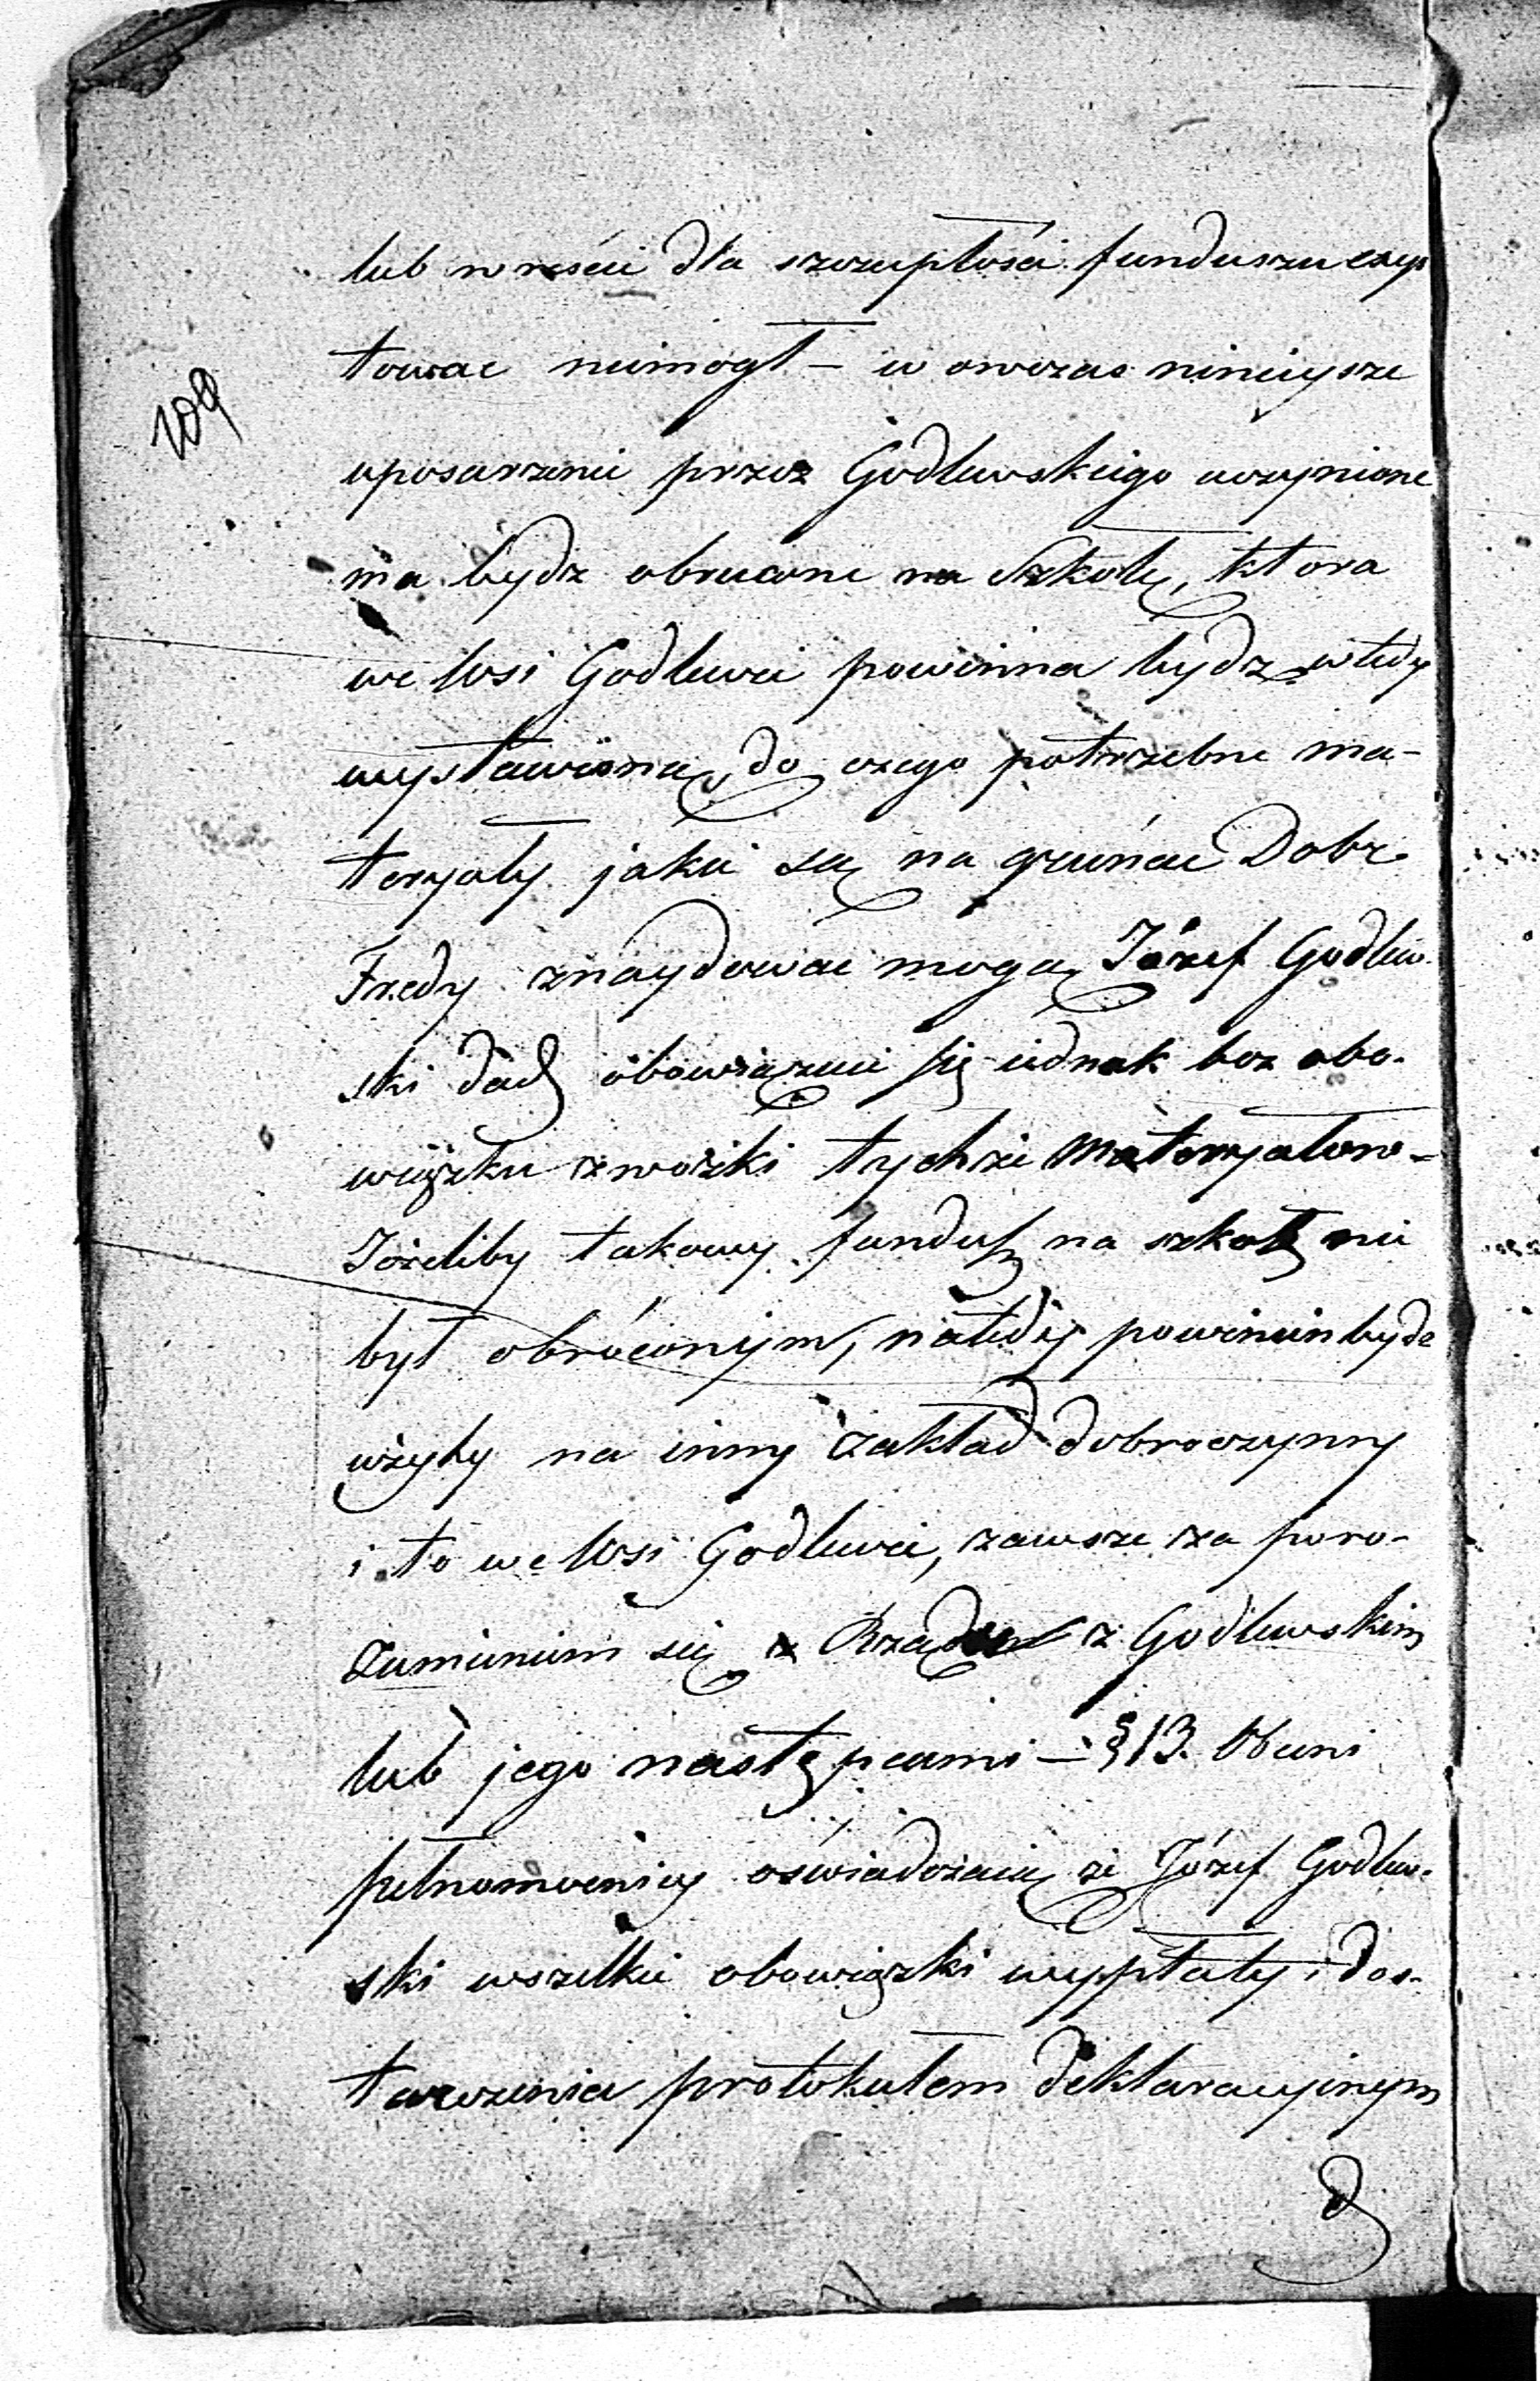 lub wreście dla szczupłości funduszu exys
towac niemogł — w owczas ninieysze
109
uposarzenie przez Godlewskiego uczynione
ma bydz obrucone na Szkołę, ktora
we Wsi Godlewie powinna bydz wtedy
wystawiona, do czego potrzebne ma-
teryały jakie są na grúncie Dobr
Fredy znaydowac mogą Józef Godlew-
ski dać obowiązuie się iednak bez obo-
wiązku zwózki tychże Materyałow -
Jeżeliby takowy fundusz na szkołę nie
był obróconym, natedy powinien bydz
użyty na inny zakład dobroczynny
i to we Wsi Godlewie, zawsze za poro-
zumieniem się z Rządem z Godlewskim
lub jego następcami — § 13. Obecni
pełnomocnicy oświadczaią że Józef Godlew-
ski wszelkie obowiązki wypłaty i dos-
tarczenia protokułem deklaracyinym